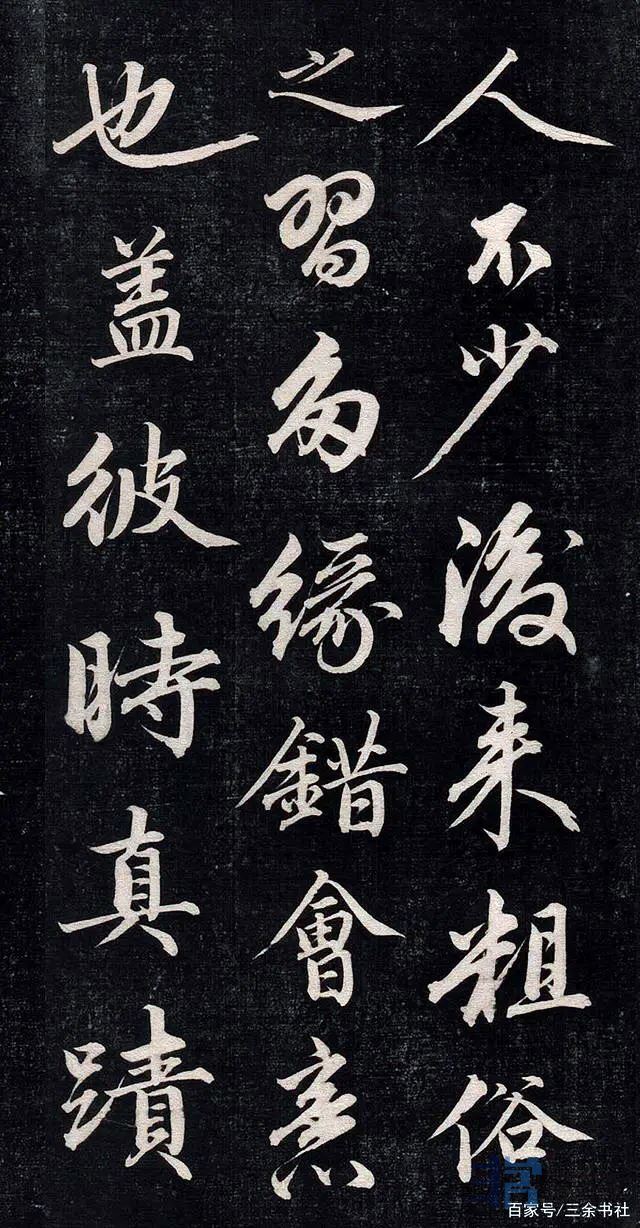 人不少後来粗俗
之習多緣錯會意
也盖彼時真蹟
百家号/三余书社